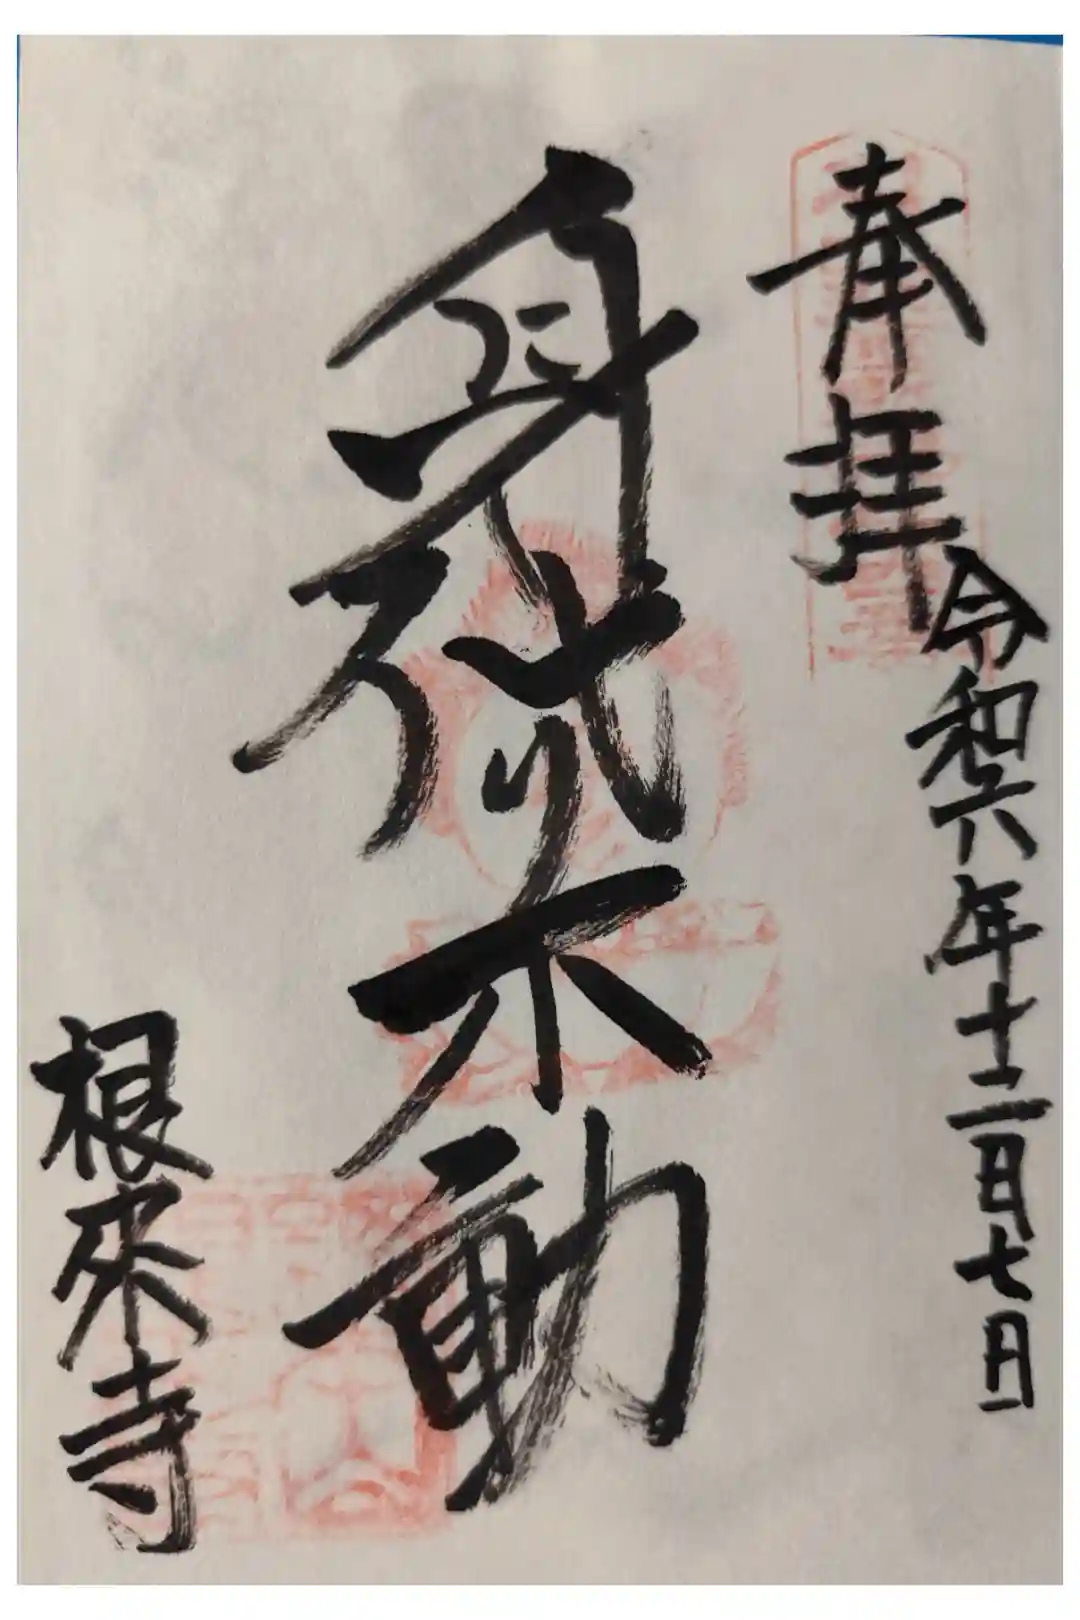 奉拝
令和六年十二月七日
身代り不動
根来寺